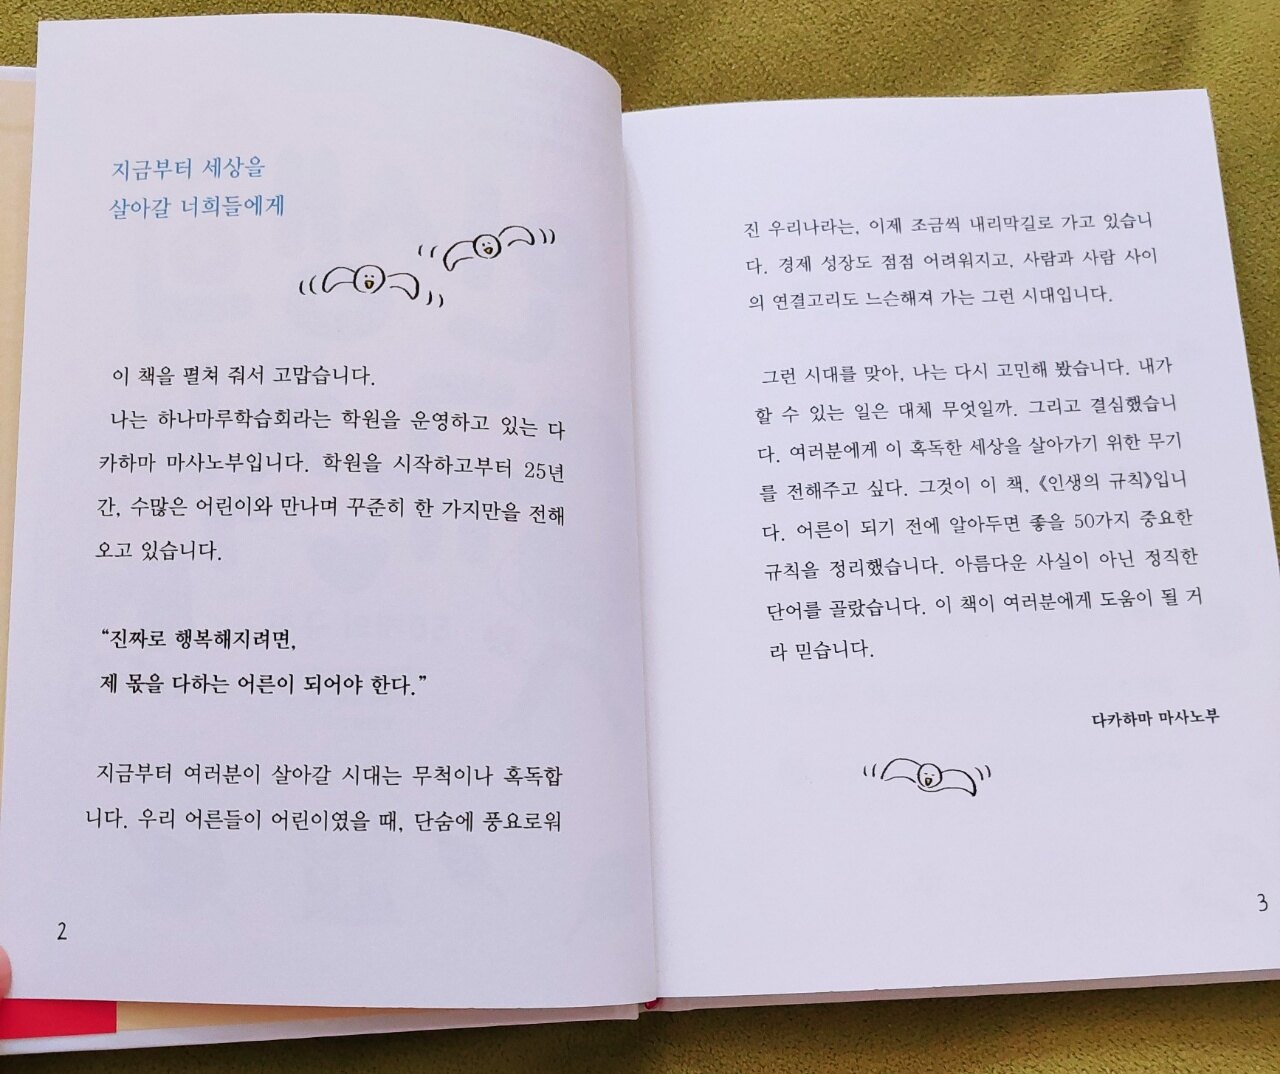 지금부터 세상을
살아갈 너희들에게
이 책을 펼쳐 줘서 고맙습니다.
나는 하나마루학습회라는 학원을 운영하고 있는 다
카하마 마사노부입니다. 학원을 시작하고부터 25년
간, 수많은 어린이와 만나며 꾸준히 한 가지만을 전해
오고 있습니다.
“진짜로 행복해지려면,
제 몫을 다하는 어른이 되어야 한다.”
지금부터 여러분이 살아갈 시대는 무척이나 혹독합
니다. 우리 어른들이 어린이였을 때, 단숨에 풍요로워
2
진 우리나라는, 이제 조금씩 내리막길로 가고 있습니
다. 경제 성장도 점점 어려워지고, 사람과 사람 사이
의 연결고리도 느슨해져 가는 그런 시대입니다.
그런 시대를 맞아, 나는 다시 고민해 봤습니다. 내가
할 수 있는 일은 대체 무엇일까. 그리고 결심했습니
다. 여러분에게 이 혹독한 세상을 살아가기 위한 무기
를 전해주고 싶다. 그것이 이 책, 《인생의 규칙》입니
다. 어른이 되기 전에 알아두면 좋을 50가지 중요한
규칙을 정리했습니다. 아름다운 사실이 아닌 정직한
단어를 골랐습니다. 이 책이 여러분에게 도움이 될 거
라 믿습니다.
다카하마 마사노부
3